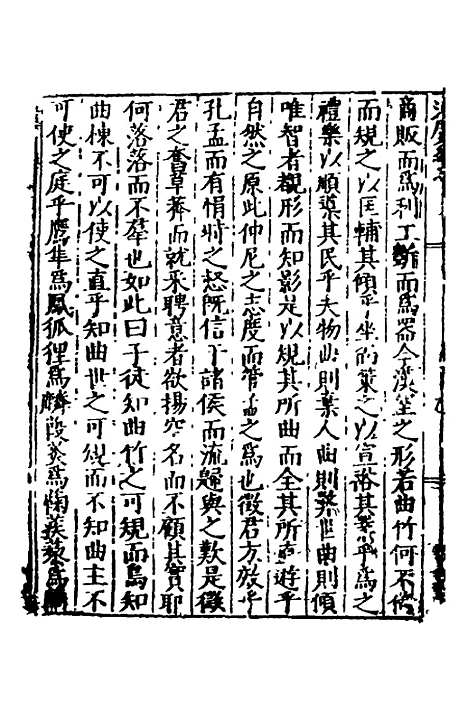 商販而爲利工斵而爲器今漢室之形若曲竹何不
而規之以匡輔其傾乎坐而策之以宣裕其業乎爲之
禮樂以順導其民乎夫物曲則棄人曲則黎世曲則傾
唯智者觀形而知影是以規其所曲而全其所直遊乎
自然之原此仲尼之志度而管孟之爲也徵君方效乎
孔孟而有悄時之怒旣信于諸侯而流歸與之歎是徵
君之奮草莽而就釆聘意者欲揚空名而不顧其實耶
何落落而不羣也如此曰子徒知曲竹之可規而烏知
曲棟不可以使之直乎知曲世之可規而不知曲主不
可使之庭乎鷹隼爲鳳狐狸爲麟爲蒺藜爲